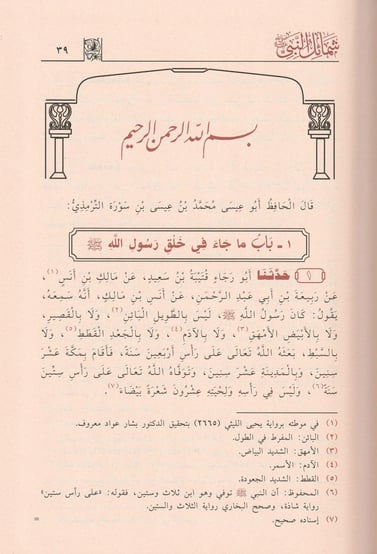 شمائل النبي ﷺ
٣٩
بسم الله الرحمن الرحيم
قَالَ الْحَافِظُ أَبُو عِيسَى مُحَمَّدُ بْنُ عِيسَى بْنِ سَوْرَةَ التِّرْمِذِيُّ:
١ - بَابُ ما جَاءَ في خَلْقِ رَسُولِ اللَّهِ ﷺ
[١] حَدَّثَنَا أَبُو رَجَاءٍ قُتَيْبَةُ بْنُ سَعِيدٍ، عَنْ مَالِكِ بْنِ أَنَسٍ(١)،
عَنْ رَبِيعَةَ بْنِ أَبِي عَبْدِ الرَّحْمَنِ، عَنْ أَنَسِ بْنِ مَالِكٍ، أَنَّهُ سَمِعَهُ،
يَقُولُ: كَانَ رَسُولُ اللَّهِ ﷺ، لَيْسَ بِالطَّوِيلِ الْبَائِنِ(٢)، وَلَا بِالْقَصِيرِ،
وَلَا بِالْأَبْيَضِ الْأَمْهَقِ(٣)، وَلَا بِالْآدَمِ(٤)، وَلَا بِالْجَعْدِ الْقَطَطِ(٥)، وَلَا
بِالسَّبْطِ، بَعَثَهُ اللَّهُ تَعَالَى عَلَى رَأْسِ أَرْبَعِينَ سَنَةً، فَأَقَامَ بِمَكَّةَ عَشْرَ
سِنِينَ، وَبِالْمَدِينَةِ عَشْرَ سِنِينَ، وَتَوَفَّاهُ اللَّهُ تَعَالَى عَلَى رَأْسِ سِتِّينَ
سَنَةً(٦)، وَلَيْسَ فِي رَأْسِهِ وَلِحْيَتِهِ عِشْرُونَ شَعْرَةً بَيْضَاءَ(٧).
(١) في موطئه برواية يحيى الليثي (٢٦٦٥) بتحقيق الدكتور بشار عواد معروف.
(٢) البائن: المفرط في الطول.
(٣) الأمهق: الشديد البياض.
(٤) الآدم: الأسمر.
(٥) القطط: الشديد الجعودة.
(٦) المحفوظ: أن النبي ﷺ توفي وهو ابن ثلاث وستين، فقوله: «على رأس ستين»
رواية شاذة، وصحح البخاري رواية الثلاث والستين.
(٧) إسناده صحيح. =